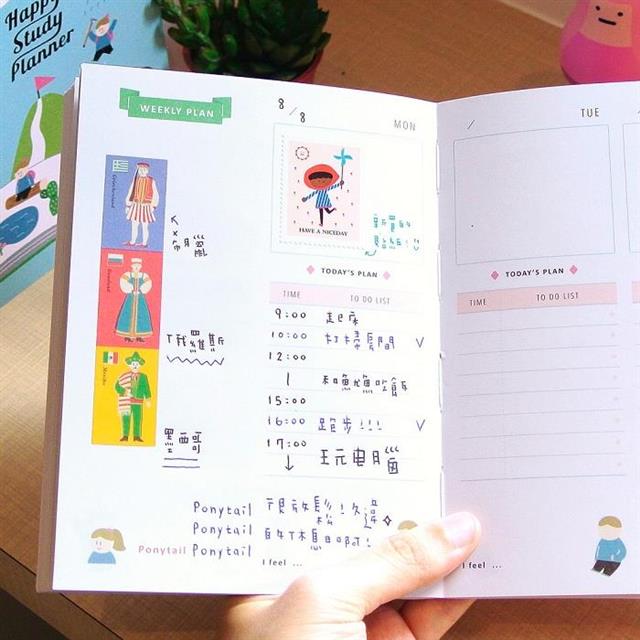 Happy
Study
Planner
WEEKLY PLAN
8/8
MON
HAVE A NICEDAY
希臘
俄羅斯
墨西哥
TODAY'S PLAN
TIME TO DO LIST
9:00 起床
10:00 打掃房間 V
12:00
吃飯
15:00
16:00 跑步!!! V
17:00 玩电腦
Ponytail
Ponytail
Ponytail Ponytail
放鬆!久違
的休息日啊!
I feel ...
/
TUE
TODAY'S PLAN
TIME TO DO LIST
I feel ...